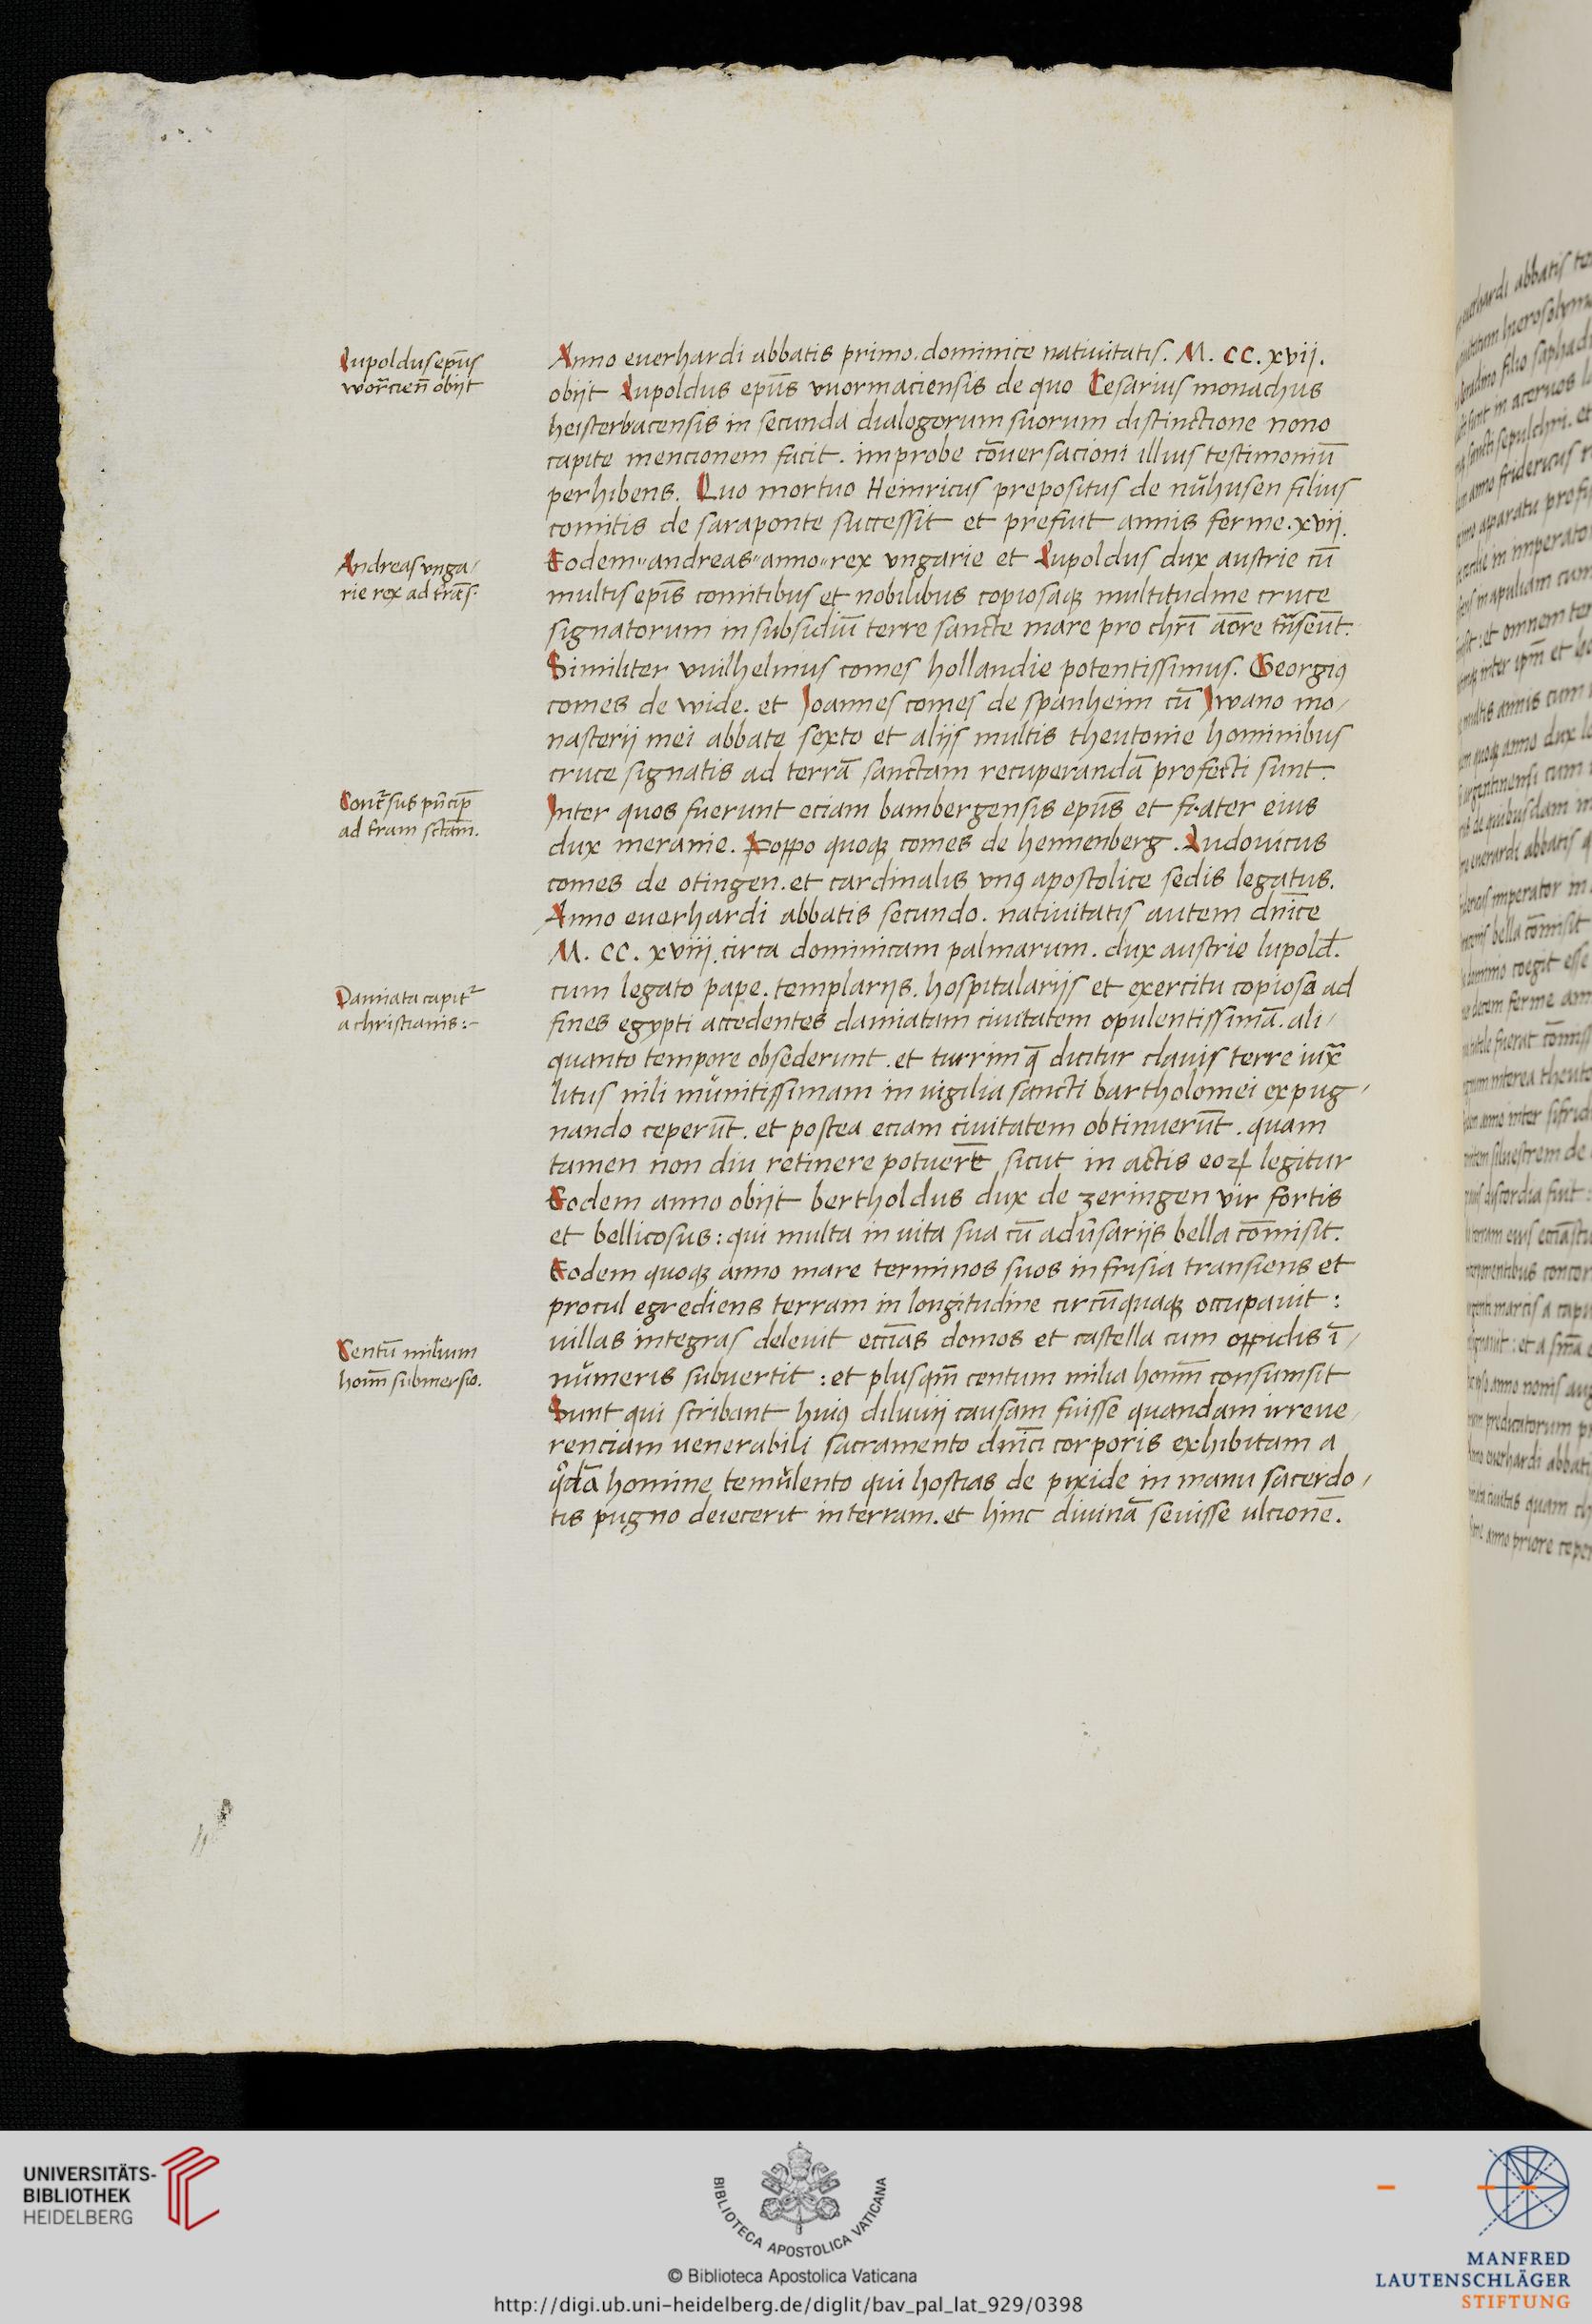 Lupoldus ep̄us
worm̄cien̄ obijt
Anno euerhardi abbatis primo. dominice natiuitatis. M. CC. xvij.
obijt Lupoldus ep̄us vuormaciensis de quo Cesarius monachus
heisterbacensis in secunda dialogorum suorum distinctione nono
capite mencionem facit. improbe cōuersacioni illius testimoniū
perhibens. Quo mortuo Heinricus prepositus de nŭhusen filius
comitis de saraponte successit et prefuit annis ferme. xvij.
Andreas vnga/
rie rex ad trās.
Eodem " andreas " anno " rex vngarie et Lupoldus dux austrie cū
multis ep̄is comitibus et nobilibus copiosaqꝫ multitudine cruce
signatorum in subsidiū terre sancte mare pro chr̄i am̄ore tr̄nseūt.
Similiter vuilhelmus comes hollandie potentissimus. Georgiꝰ
comes de wide. et Joannes comes de spanheim cū Ywano mo/
nasterij mei abbate sexto et alijs multis theutonie hominibus
cruce signatis ad terrā sanctam recuperandā profecti sunt.
Conc̄sus pn̄cip̄
ad tram sctam̄.
Inter quos fuerunt eciam bambergensis ep̄us et frater eius
dux meranie. Poppo quoqꝫ comes de hennenberg. Ludouicus
comes de otingen. et cardinalis vnꝰ apostolice sedis legatus.
Anno euerhardi abbatis secundo. natiuitatis autem dn̄ice
M. CC. xviij. circa dominicam palmarum. dux austrie lupold̄.
Damiata capit᷑
a christianis :~
cum legato pape. templarijs. hospitalarijs et exercitu copioso ad
fines egypti accedentes damiatam ciuitatem opulentissimā. ali/
quanto tempore obsederunt. et turrim q̄ dicitur clauis terre iuxᷓ
litus nili mŭnitissimam in vigilia sancti bartholomei expug/
nando ceperūt. et postea eciam ciuitatem obtinuerūt. quam
tamen non diu retinere potuerт̄ sicut in actis eoꝝ legitur
Eodem anno obijt bertholdus dux de zeringen vir fortis
et bellicosus: qui multa in uita sua cū adu̅sarijs bella cōmisit.
Eodem quoqꝫ anno mare terminos suos in frisia transiens et
procul egrediens terram in longitudine circūquaqꝫ occupauit:
Centū milium
hoīm submersio.
villas integras deleuit ecc̄ias domos et castella cum oppidis ī/
nŭmeris subuertit: et plusqm̄ centum milia hoīm consumsit
Sunt qui scribant huiꝰ diluuij causam fuisse quandam irreue/
renciam uenerabili sacramento dn̄ici corporis exhibitam a
qͦdā homine temŭlento qui hostias de pixide in manu sacerdo/
tis pugno deiecerit in terram. et hinc diuinā seuisse ulcionē.
UNIVERSITÄTS-
BIBLIOTHEK
HEIDELBERG
BIBLIOTECA APOSTOLICA VATICANA
© Biblioteca Apostolica Vaticana
http://digi.ub.uni-heidelberg.de/diglit/bav_pal_lat_929/0398
MANFRED
LAUTENSCHLÄGER
STIFTUNG